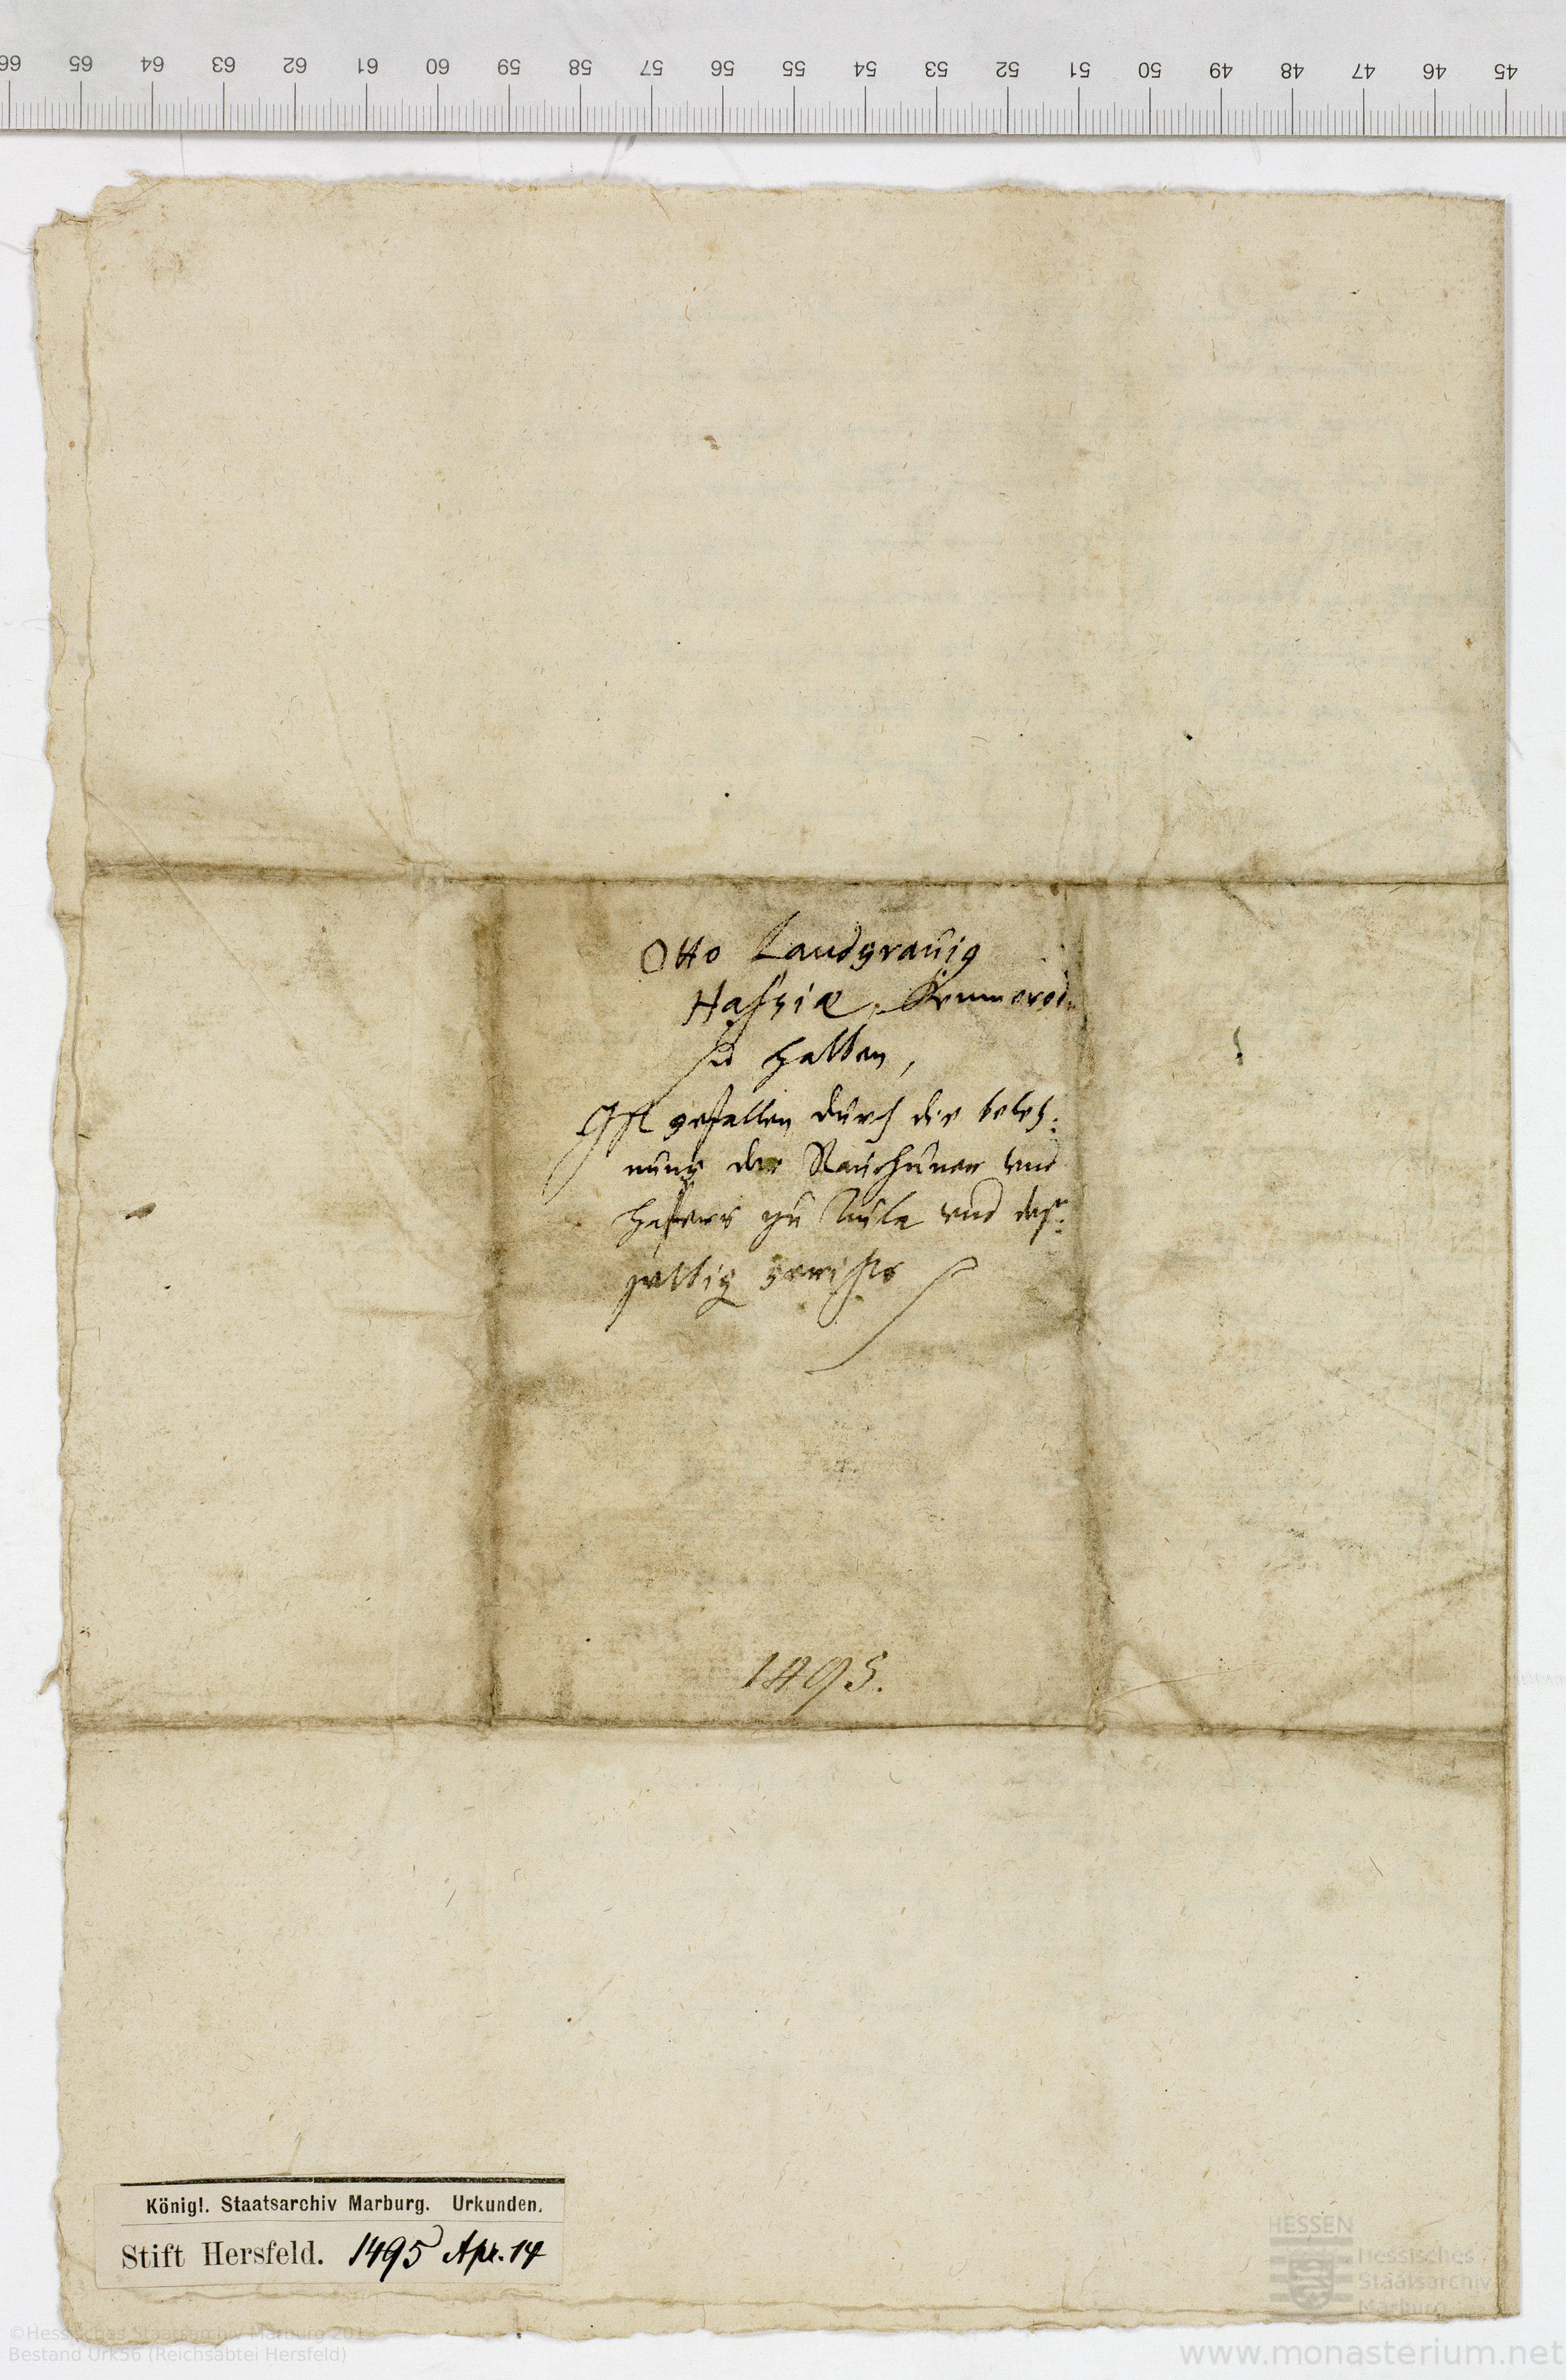 66 65 64 63 62 61 60 59 58 57 56 55 54 53 52 51 50 49 48 47 46 45
Otto Landgravig
Hassiæ,
zu halten,
Ist gefallen durch die beleh:
nung der Rauchhuner vnd
hafers zu Aula vnd das:
selbig gerichts
1495.
Königl. Staatsarchiv Marburg. Urkunden.
Stift Hersfeld. 1495 Apr. 14
HESSEN
Hessisches
Staatsarchiv
Marburg
©Hessisches Staatsarchiv Marburg
Bestand Urk56 (Reichsabtei Hersfeld)
www.monasterium.net